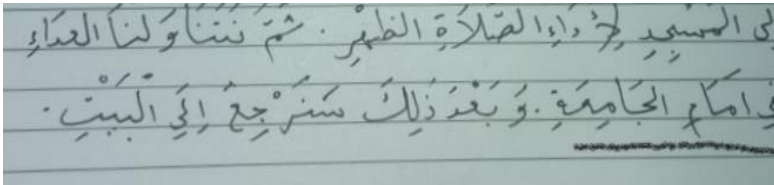 لى المَسْجِدِ لِأَدَاءِ الصَّلَاةِ الظُهْرِ. ثُمَّ نَتَنَاوَلنَا الغَدَاءِ
فِي امَامِ الجَامِعَةِ. وَبَعْدَ ذَلِكَ سَنَرْجِعُ اِلَي الْبَيْتِ.